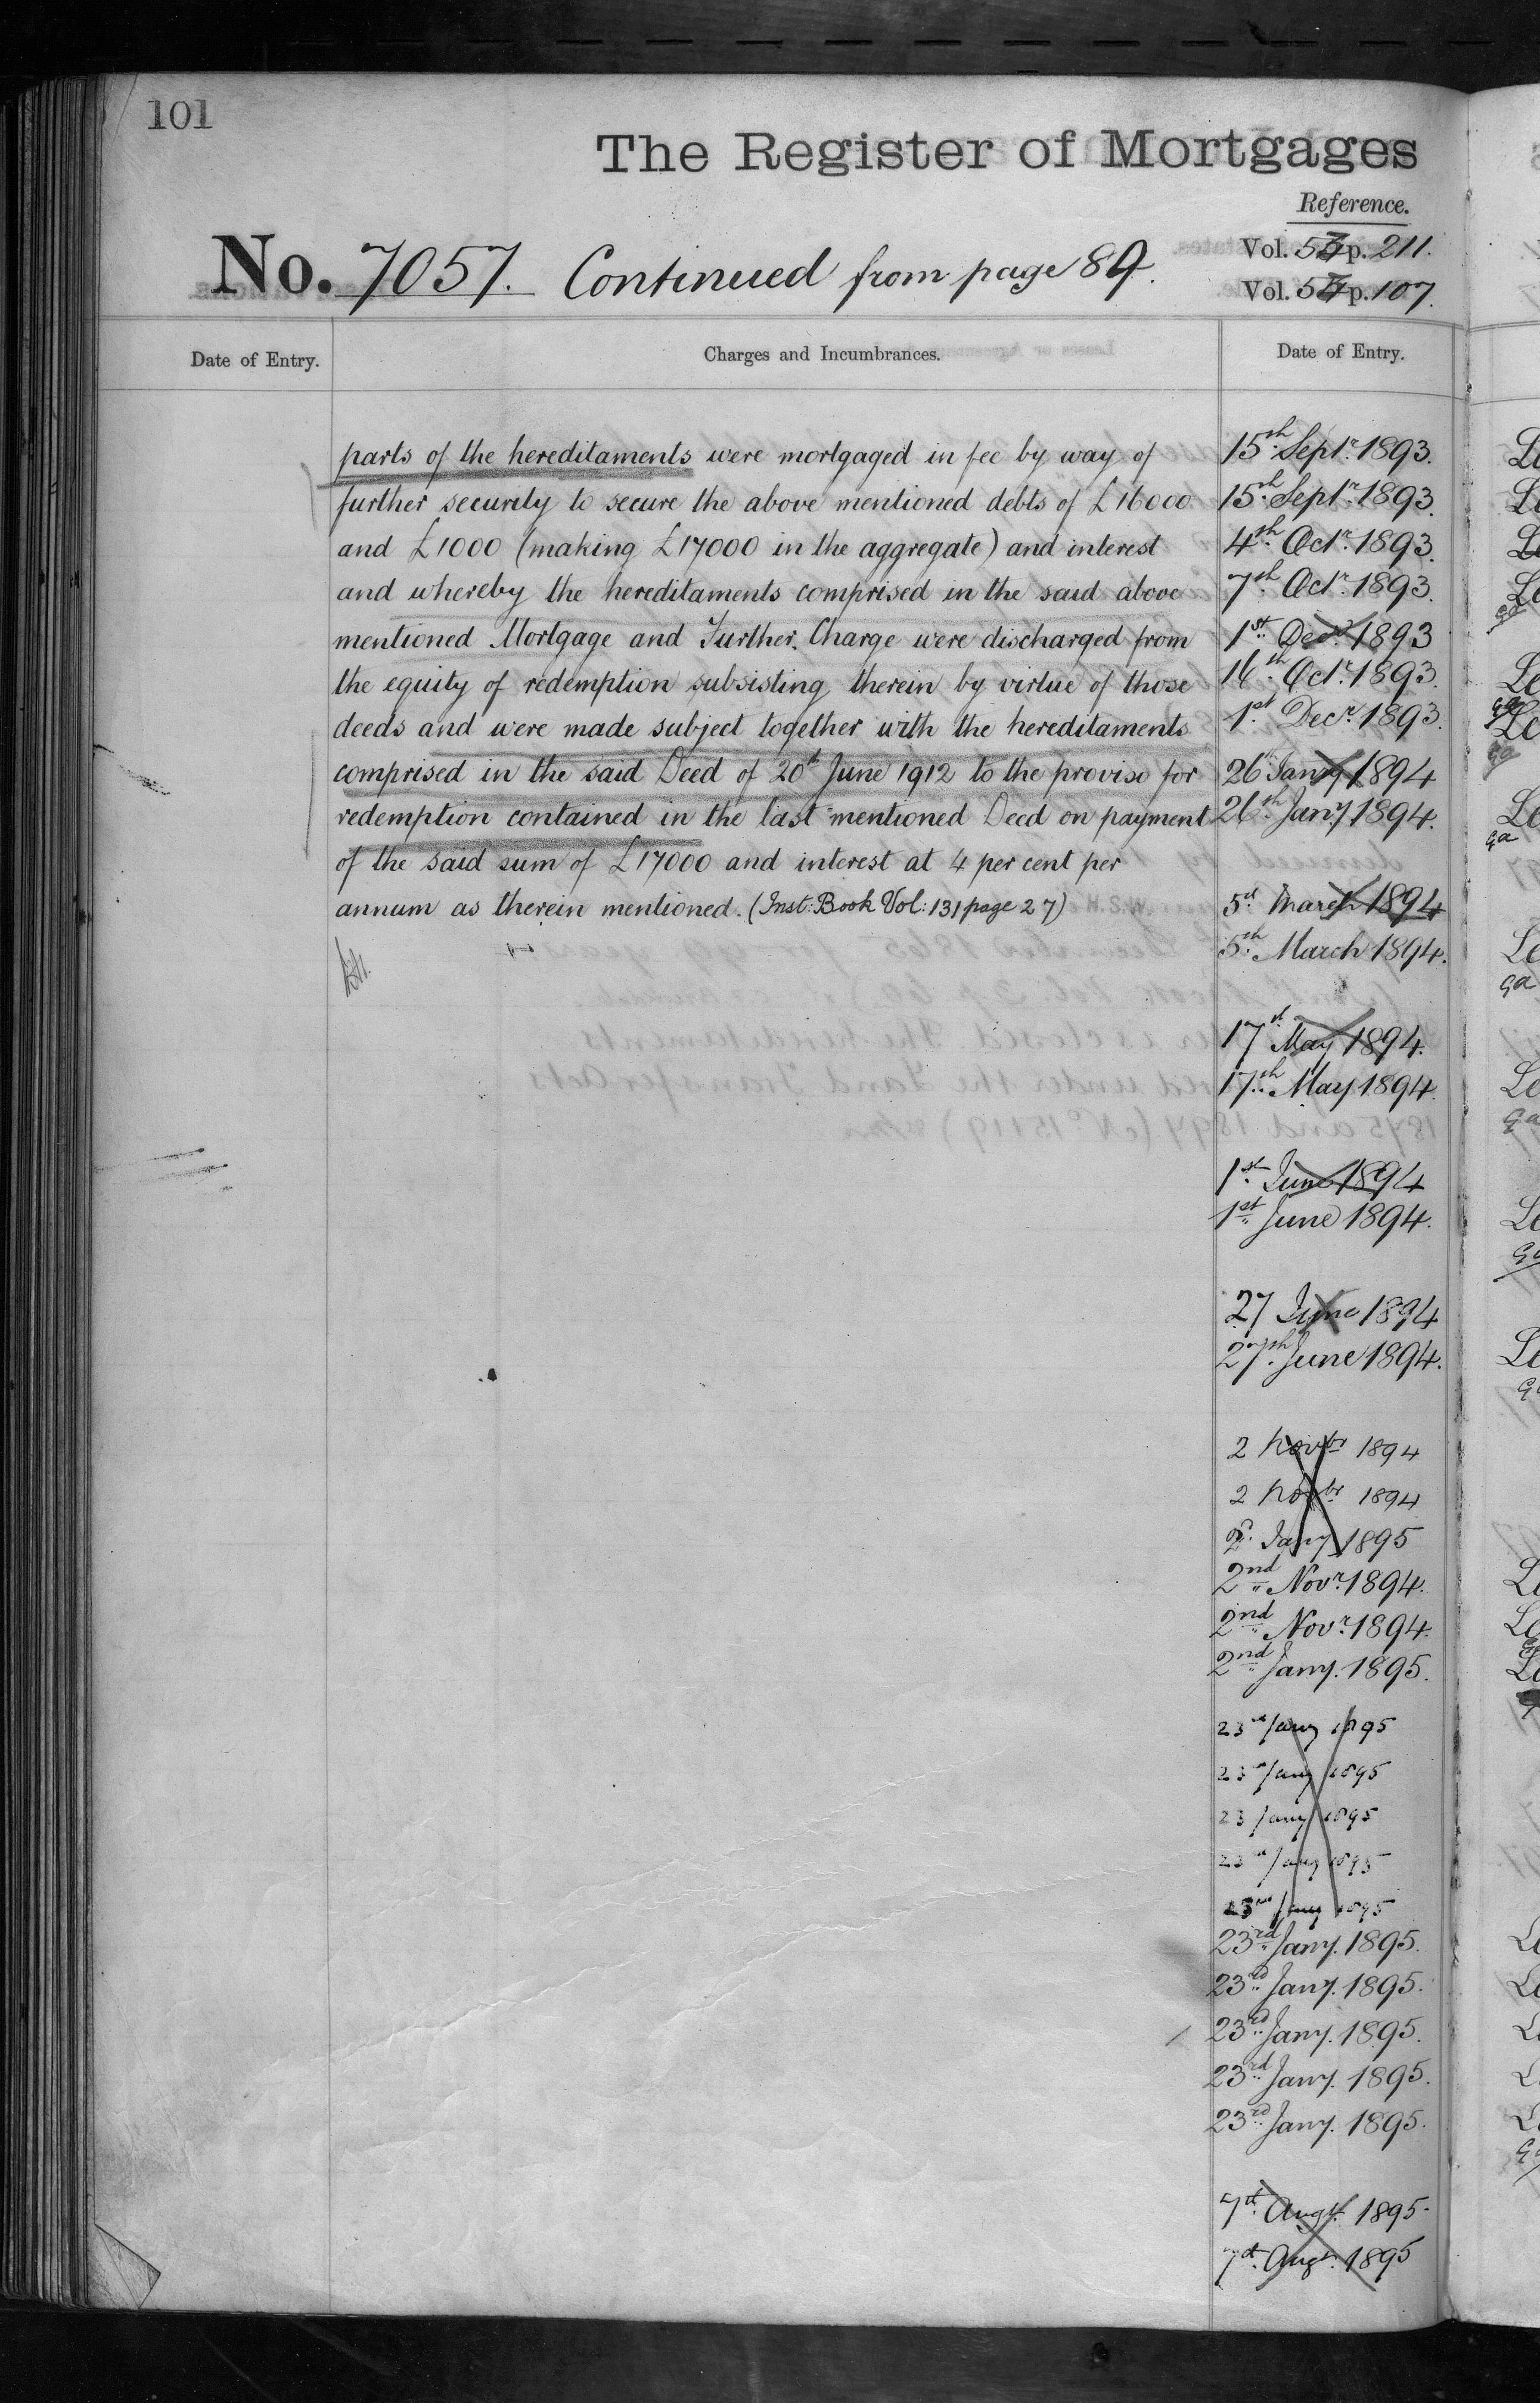 101
The Register of Mortgages
Reference.
No. 7057. Continued from page 89.
Vol. 53 p. 211.
Vol. 54 p. 107.
Date of Entry.
Charges and Incumbrances.
Date of Entry.
parts of the hereditaments were mortgaged in fee by way of
further security to secure the above mentioned debts of £16000
and £1000 (making £17000 in the aggregate) and interest
and whereby the hereditaments comprised in the said above
mentioned Mortgage and Further Charge were discharged from
the equity of redemption subsisting therein by virtue of those
deeds and were made subject together with the hereditaments
comprised in the said Deed of 20th June 1912 to the proviso for
redemption contained in the last mentioned Deed on payment
of the said sum of £17000 and interest at 4 per cent per
annum as therein mentioned. (Inst: Book Vol: 131 page 27)
15th Septr. 1893.
15th Septr. 1893.
4th Octr. 1893.
7th Octr. 1893.
1st Decr. 1893
16th Octr. 1893.
1st Decr. 1893.
26th Jany 1894
26th Jany 1894.
5th March 1894
5th March 1894.
17th May 1894.
17th May 1894.
1st June 1894
1st June 1894.
27 June 1894
27th June 1894.
2 Novbr 1894
2 Novbr 1894
2d. Jany 1895
2nd Novr. 1894.
2nd Novr. 1894.
2nd Jany. 1895.
23rd Jany 1895
23rd Jany 1895
23 Jany 1895
23rd Jany 1895
23rd Jany 1895
23rd Jany. 1895.
23rd Jany. 1895.
23rd Jany. 1895.
23rd Jany. 1895.
23rd Jany. 1895.
7th Augt. 1895
7th Augt. 1895